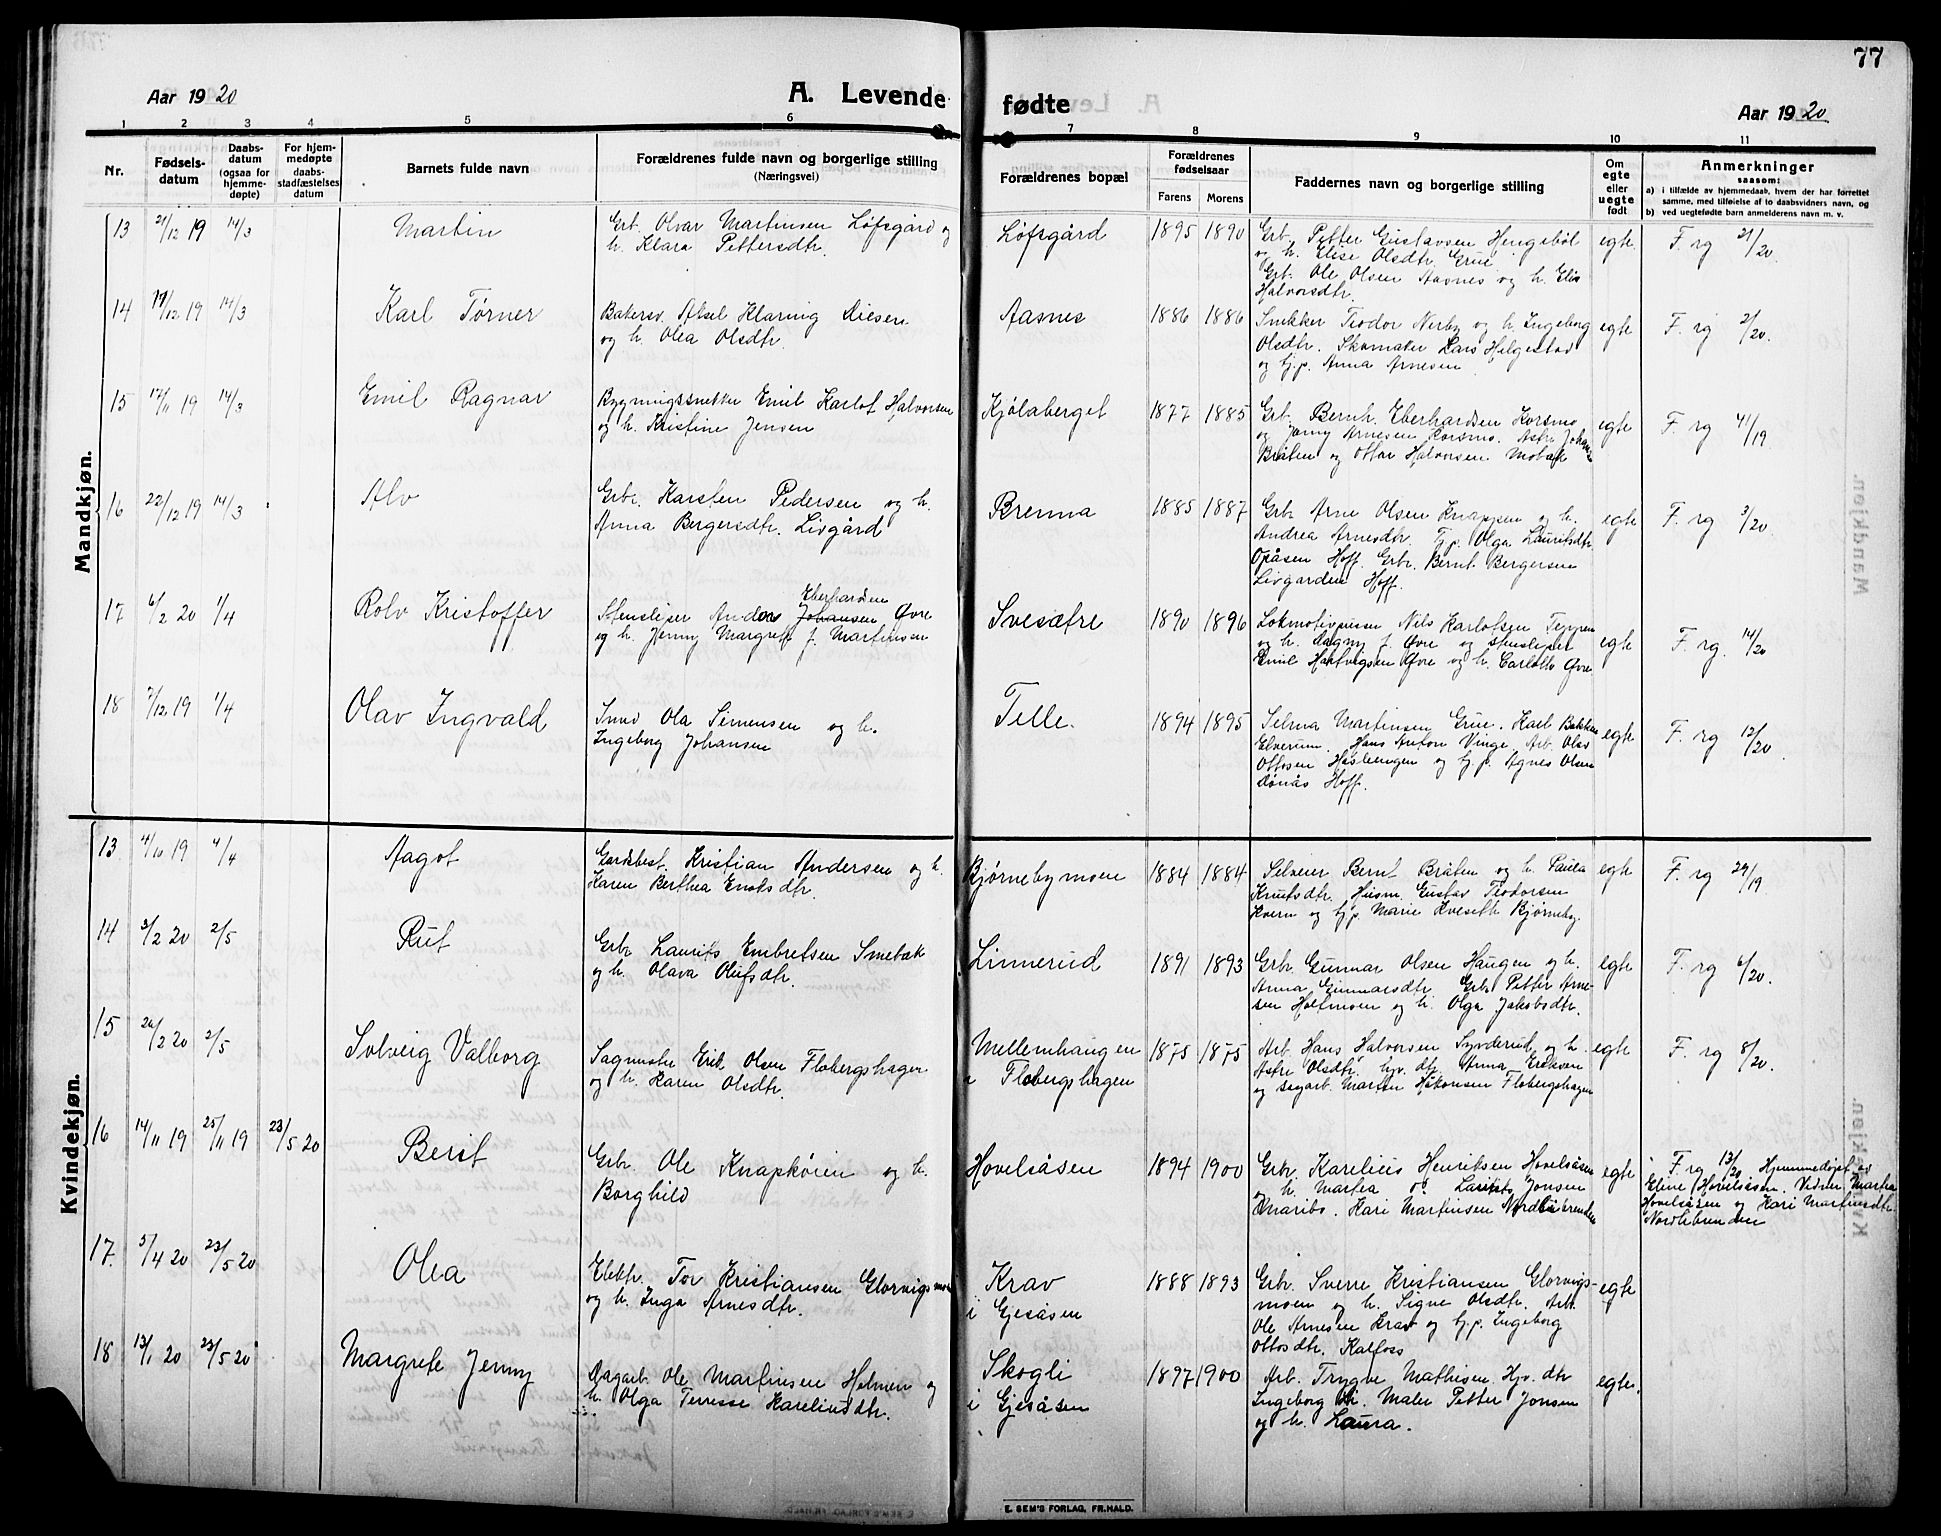 77
Aar 1920
A. Levende
fødte
Aar 1920
1 2 3 4 5 6 7 8 9 10 11
Nr.
Fødsels-
datum
Daabs-
datum
(ogsaa for
hjemme-
døpte)
For hjem-
medøpte
daabs-
stadfæstelses
datum
Barnets fulde navn
Forældrenes fulde navn og borgerlige stilling
(Næringsvei)
Forældrenes bopæl
Forældrenes
fødselsaar
Farens Morens
Faddernes navn og borgerlige stilling
Om
egte
eller
uegte
født
Anmerkninger
saasom:
a) i tilfælde av hjemmedaab, hvem der har forrettet
samme, med tilføielse af to daabsvidners navn, og
b) ved uegtefødte barn anmelderens navn m. v.
Mandkjøn.
13 21/12 19 14/3 Martin
Grb. Olvar Martinsen Løfsgård og
h. Klara Pettersdtr.
Løfsgård 1895 1890
Grb. Petter Gustavsen Hengsbøl
og h. Elise Olsdtr. Grue
Grb. Ole Olsen Aasnes og h. Elis
Halvorsdtr.
egte F. rg 21/20.
14 19/12 19 14/3 Karl Tørner
Bakersv. Aksel Klaring Diesen
og h. Olea Olsdtr.
Aasnes 1886 1886
Snekker Teodor Nerby og h. Ingeborg
Olsdtr. Skomaker Lars Helgestad
og hj.p. Anna Arnesen
egte F. rg 2/20.
15 17/11 19 14/3 Emil Ragnar
Bygningssnekker Emil Karlot Halvorsen
og h. Kristine Jensen
Kjølaberget 1877 1885
Grb. Bernh. Eberhardsen Korsmo
og Jenny Arnesen Korsmo. Astri Johans
Bråten og Ottar Halvorsen Mobæk
egte F. rg 41/19
16 22/12 19 14/3 Alv
Grbr. Karsten Pedersen og h.
Anna Bergersdtr. Livgård
Brenna 1885 1887
Grb. Arne Olsen Knappen og h.
Andrea Arnesdtr. Tj.p. Olga Lauritsdtr.
Opåsen Hoff. Grbr. Bernt Bergersen
Livgarden Hoff.
egte F. rg 3/20.
17 6/2 20 1/4 Rolv Kristoffer
Eberhardsen
Stensliper Anders Johansen Øvre
og h. Jenny Margrete f. Martinsen
Svesætre 1890 1896
Lokmotivpusser Nils Karlotsen Teppen
og h. Dagny f. Øvre og stensliper
Emil Hartvigsen Øvre og h. Carlotte Øvre
egte F. rg. 14/20
18 7/12 19 1/4 Olav Ingvald
Smed Ola Simensen og h.
Ingeborg Johansen
Telle. 1894 1895
Selma Martinsen Grue. Karl Bakken
Elverum. Hans Anton Vinge. Arb. Olav
Ottosen Haslæmgen og hj.p. Agnes Olsen
Dønås Hoff.
egte F. rg 12/20.
Kvindekjøn.
13 4/10 19 4/4 Aagot
Gardsbest. Kristian Andersen og h.
Karen Berthea Enoksdtr.
Bjørnebymoen 1884 1884
Selveier Bernt Bråten og h. Paula
Knutsdtr. Husm. Gustav Teodorsen
Kvern og hj.p. Marie Kveseth Bjørneby.
egte F. rg 29/19.
14 3/2 20 2/5 Rut
Grbr. Laurits Embretsen Smebæk
og h. Olava Olufsdtr.
Linnerud 1891 1893
Grbr. Gunnar Olsen Haugen og h.
Anna Gunnarsdtr. Grbr. Petter Arne-
sen Holtmoen og h. Olga Jakobsdtr.
egte F. rg 6/20.
15 26/2 20 2/5 Solveig Valborg
Sagmester Erik Olsen Flobergshagen
og h. Karen Olsdtr.
Mellemhaugen
i Flobergshagen 1875 1875
Arb. Hans Halvorsen Syverud og h.
Astri Olsdtr. hjv. dtr. Anna Eriksen
og sagarb. Marten Håkonsen Flobergshagen
egte F. rg 8/20.
16 14/11 19 25/11 19 23/5 20 Berit
Grbr. Ole Knapkøien og h.
Borghild
Hovelsåsen 1894 1900
Grbr. Karelius Henriksen Hovelsåsen
og h. Martea o. Laurits Jonsen
Maribo. Kari Martinsen Nordlibrenden
egte F. rg 13/20 Hjemmedøpt av
Eline Hovelsåsen. Vidner Martea
Hovelsåsen og Kari Martinsdtr.
Nordlibrenden
17. 5/4 20 23/5 20 Olea
Elektr. Tor Kristiansen Glorvigsmoen
og h. Inga Arnesdtr.
Krav
i Gjesåsen 1888 1893
Grbr. Sverre Kristiansen Glorvigs-
moen og h. Signe Olsdtr. Arb.
Ole Arnesen Krav og hj.p. Ingeborg
Ottosdtr. Kalfoss
egte
18 13/1 20 23/5 20 Margrete Jenny
Sagarb. Ole Martinsen Helmen og
h. Olga Terresse Kareliusdtr.
Skogli
i Gjesåsen 1897 1900
Arb. Trygve Mathisen. Hjv. dtr
Ingeborg Li. Maler Petter Jonsen
og h. Laura.
egte.
E. SEM'S FORLAG, FR.HALD.